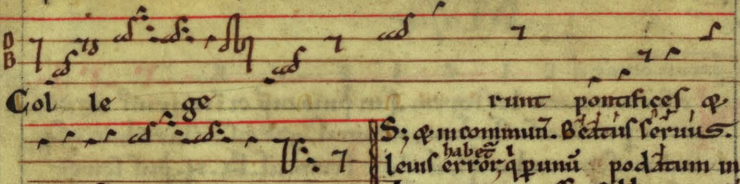 D
B
Col le ge runt pontifices &
S; & in commun̄. Beatus seruus.
habet̄ ł
leuis error, q̇ ꝑ unū podatum in